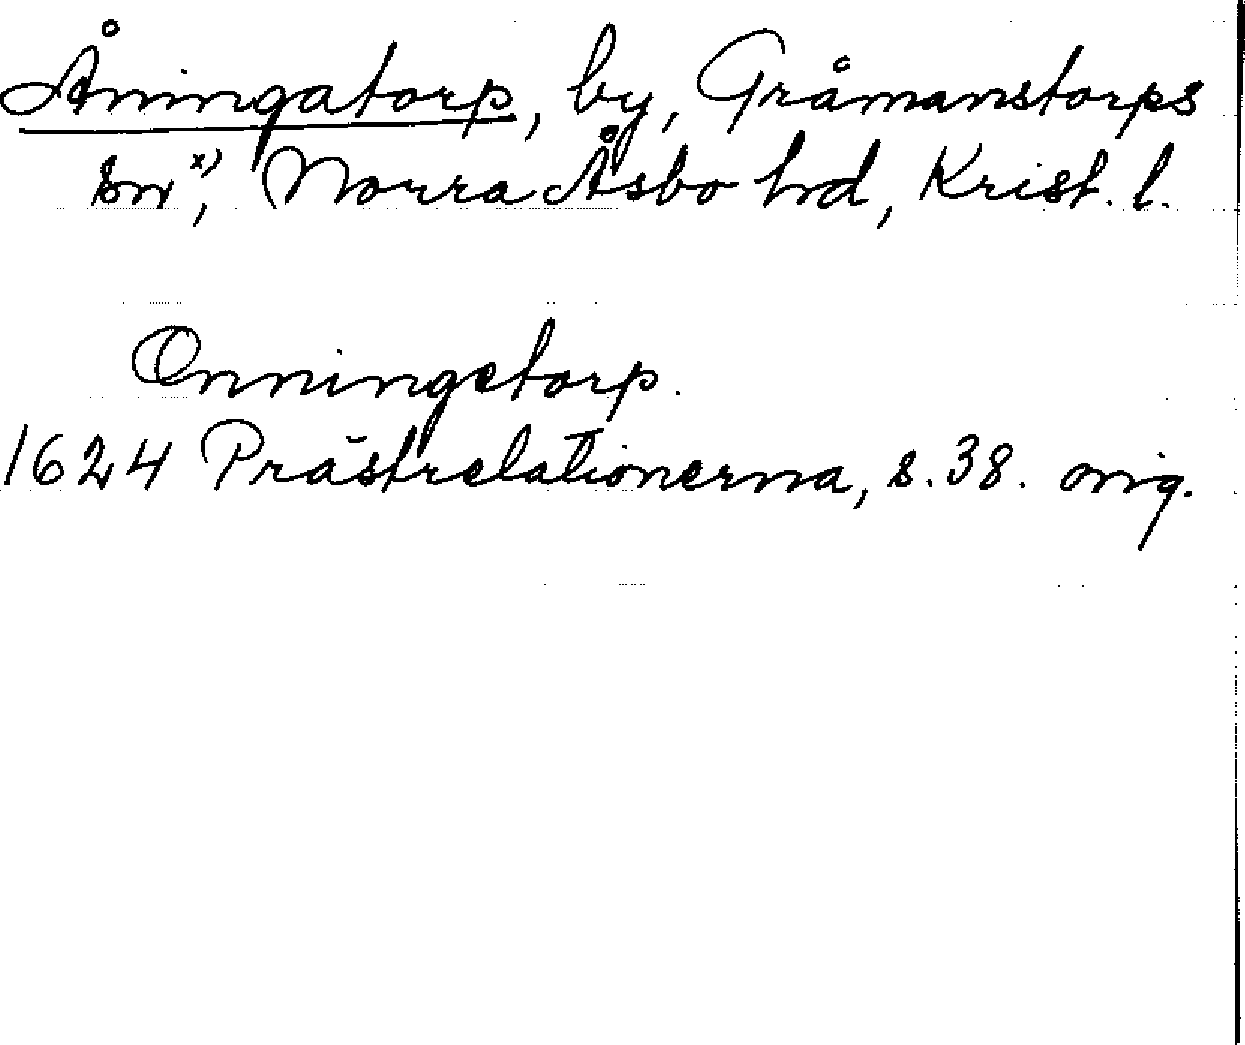 Åningatorp, by, Gråmanstorps
sn x), Norra Åsbo hd, Krist. l.
Onningetorp.
1624 Prästrelationerna, s. 38. orig.